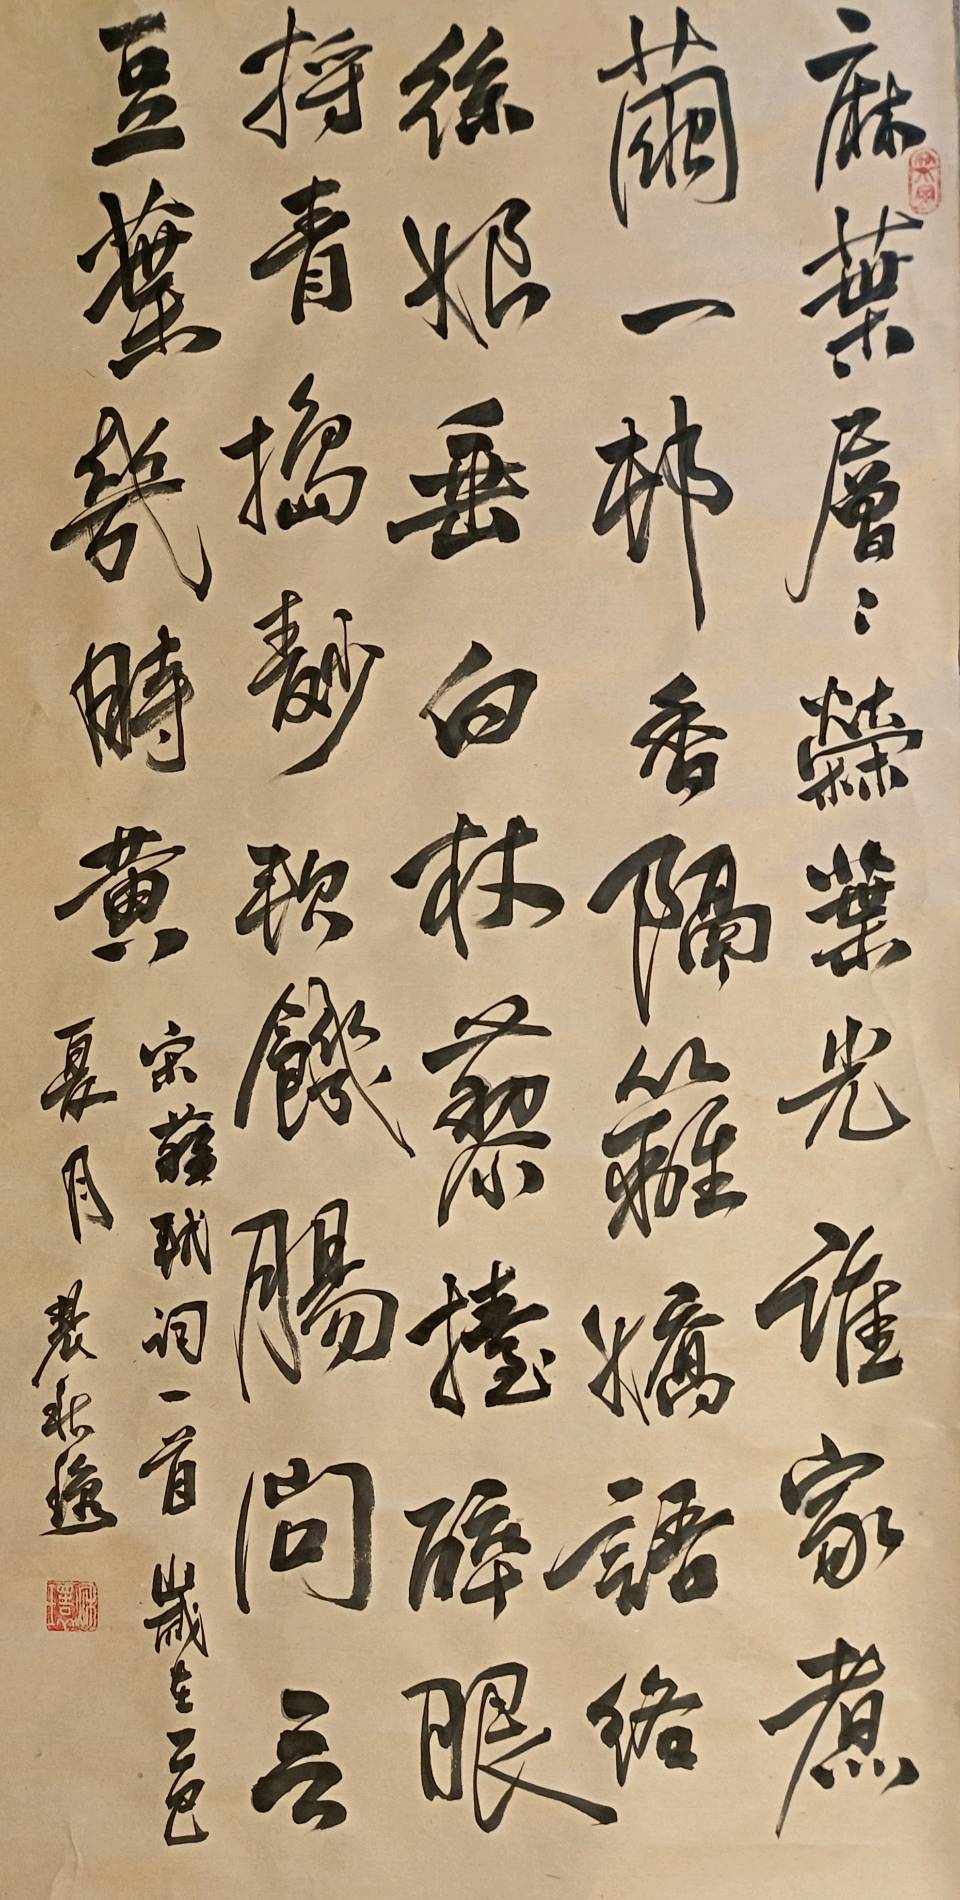 麻葉層〻檾葉光誰家煮
繭一邨香隔籬嬌語絡
絲娘垂白杖藜擡醉眼
捋青搗麨軟饑腸問言
豆葉幾時黃
宋蘇軾詞一首 歲在乙巳
夏月